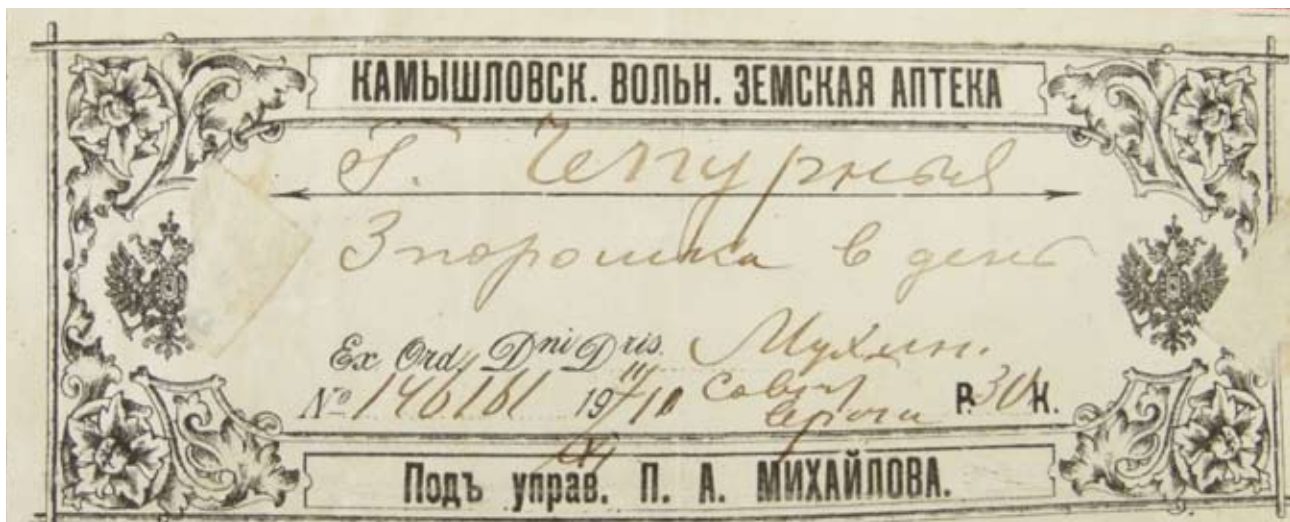 КАМЫШЛОВСК. ВОЛЬН. ЗЕМСКАЯ АПТЕКА
Г. Чепурный
3 порошка в день
Ex Ord. Dni Dris. Мухин.
№ 146161 19 10 Р. 30 К.
Подъ управ. П. А. МИХАЙЛОВА.